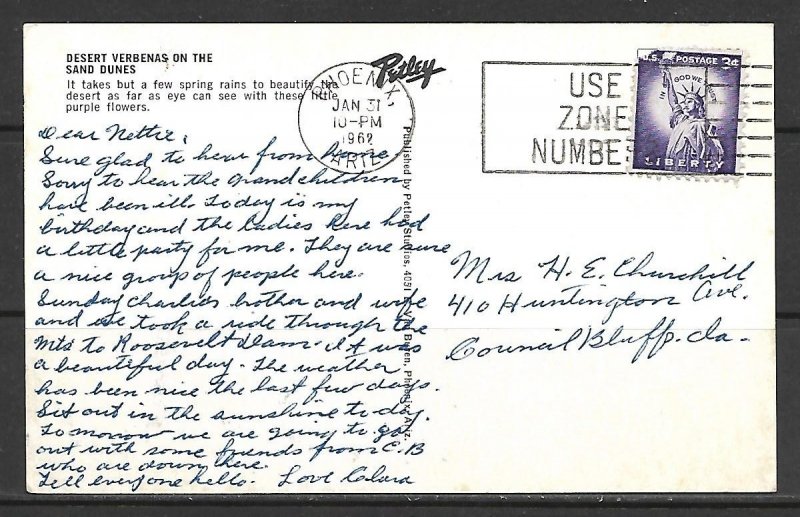 DESERT VERBENAS ON THE
SAND DUNES
It takes but a few spring rains to beautify the
desert as far as eye can see with these little
purple flowers.
Petley
PHOENIX,
JAN 31
10-PM
1962
ARIZ.
USE
ZONE
NUMBE
U.S. POSTAGE 3¢
IN GOD WE TRUST
LIBERTY
Dear Nettie,
Sure glad to hear from
Sorry to hear the grandchildren
have been ill. Today is my
birthday and the ladies here had
a little party for me. They are sure
a nice group of people here.
Sunday Charlies brother and wife
and we took a ride through the
Mts to Roosevelt Dam. It was
a beautiful day. The weather
has been nice the last few days.
Sit out in the sunshine to day.
Tomorrow we are going to go
out with some friends from C.B
who are down here.
Tell everyone hello. Love Clara
Published by Petley Studios, 4051 Van Buren, Phoenix, Ariz.
Mrs H. E. Churchill
410 Huntington Ave.
Council Bluff. Ia.